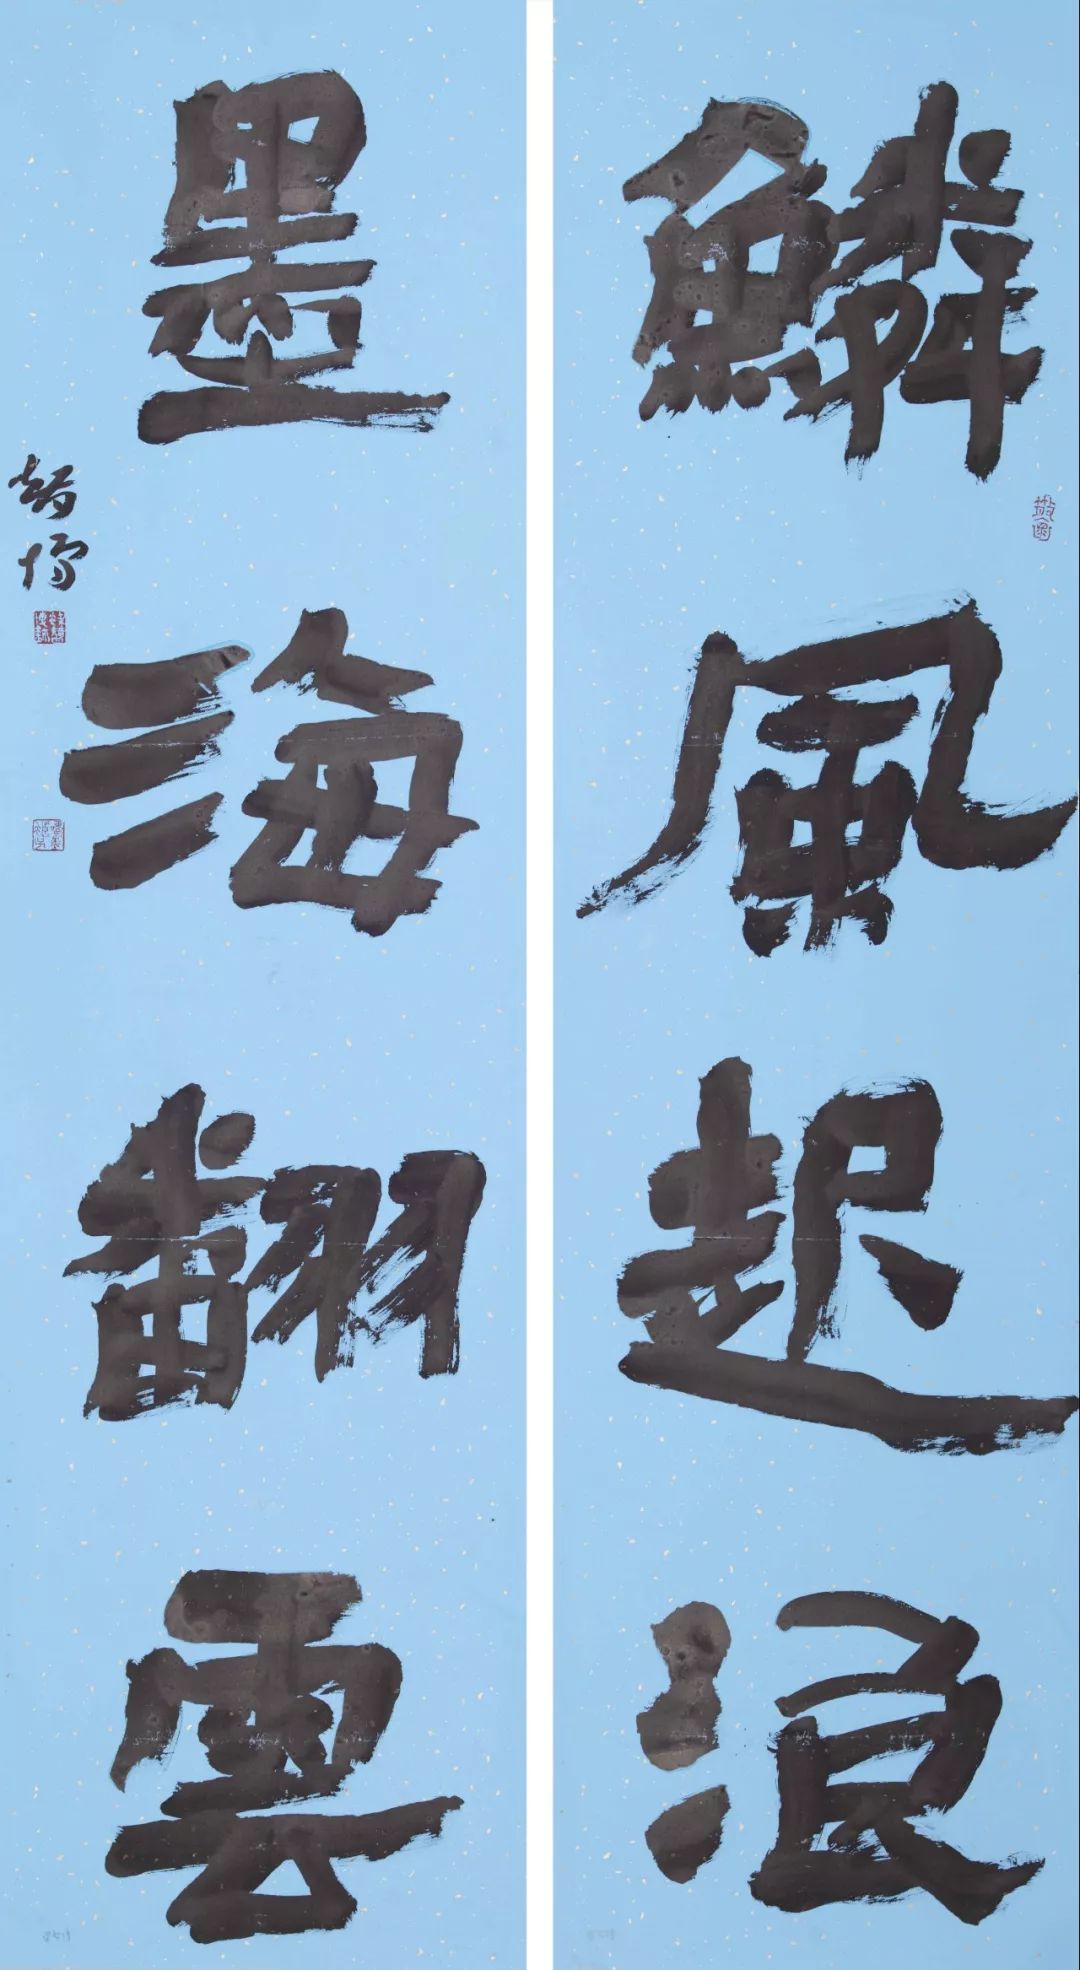 鱗風起浪
墨海翻雲